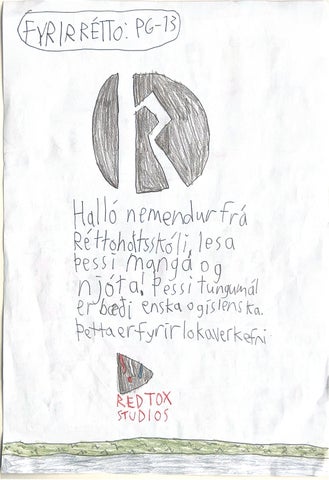 FYRIR RÉTTO: PG-13
R
Halló nemendur frá
Réttoholtsskóli, lesa
þessi manga og
njóta! Þessi tungumál
er bæði enska og íslenska.
Þetta er fyrir lokaverkefni
RED TOX
STUDIOS